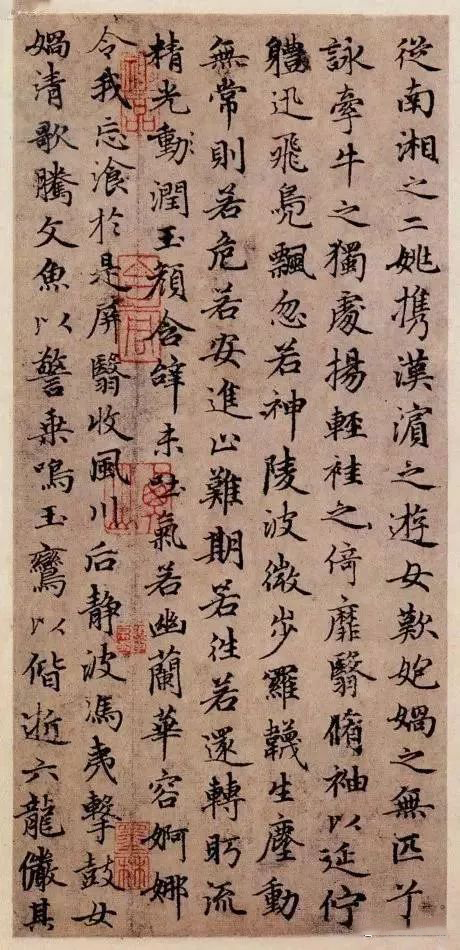 從南湘之二姚攜漢濱之遊女歎媧之無匹兮
詠牽牛之獨處揚輕袿之倚靡翳脩袖以延佇
體迅飛鳧飄忽若神陵波微步羅韈生塵動
無常則若危若安進止難期若往若還轉眄流
精光動潤玉顏含辝未吐氣若幽蘭華容婀娜
令我忘飡於是屏翳收風川后靜波馮夷擊鼓女
媧清歌騰文魚以警乗鳴玉鸞以偕逝六龍儼其